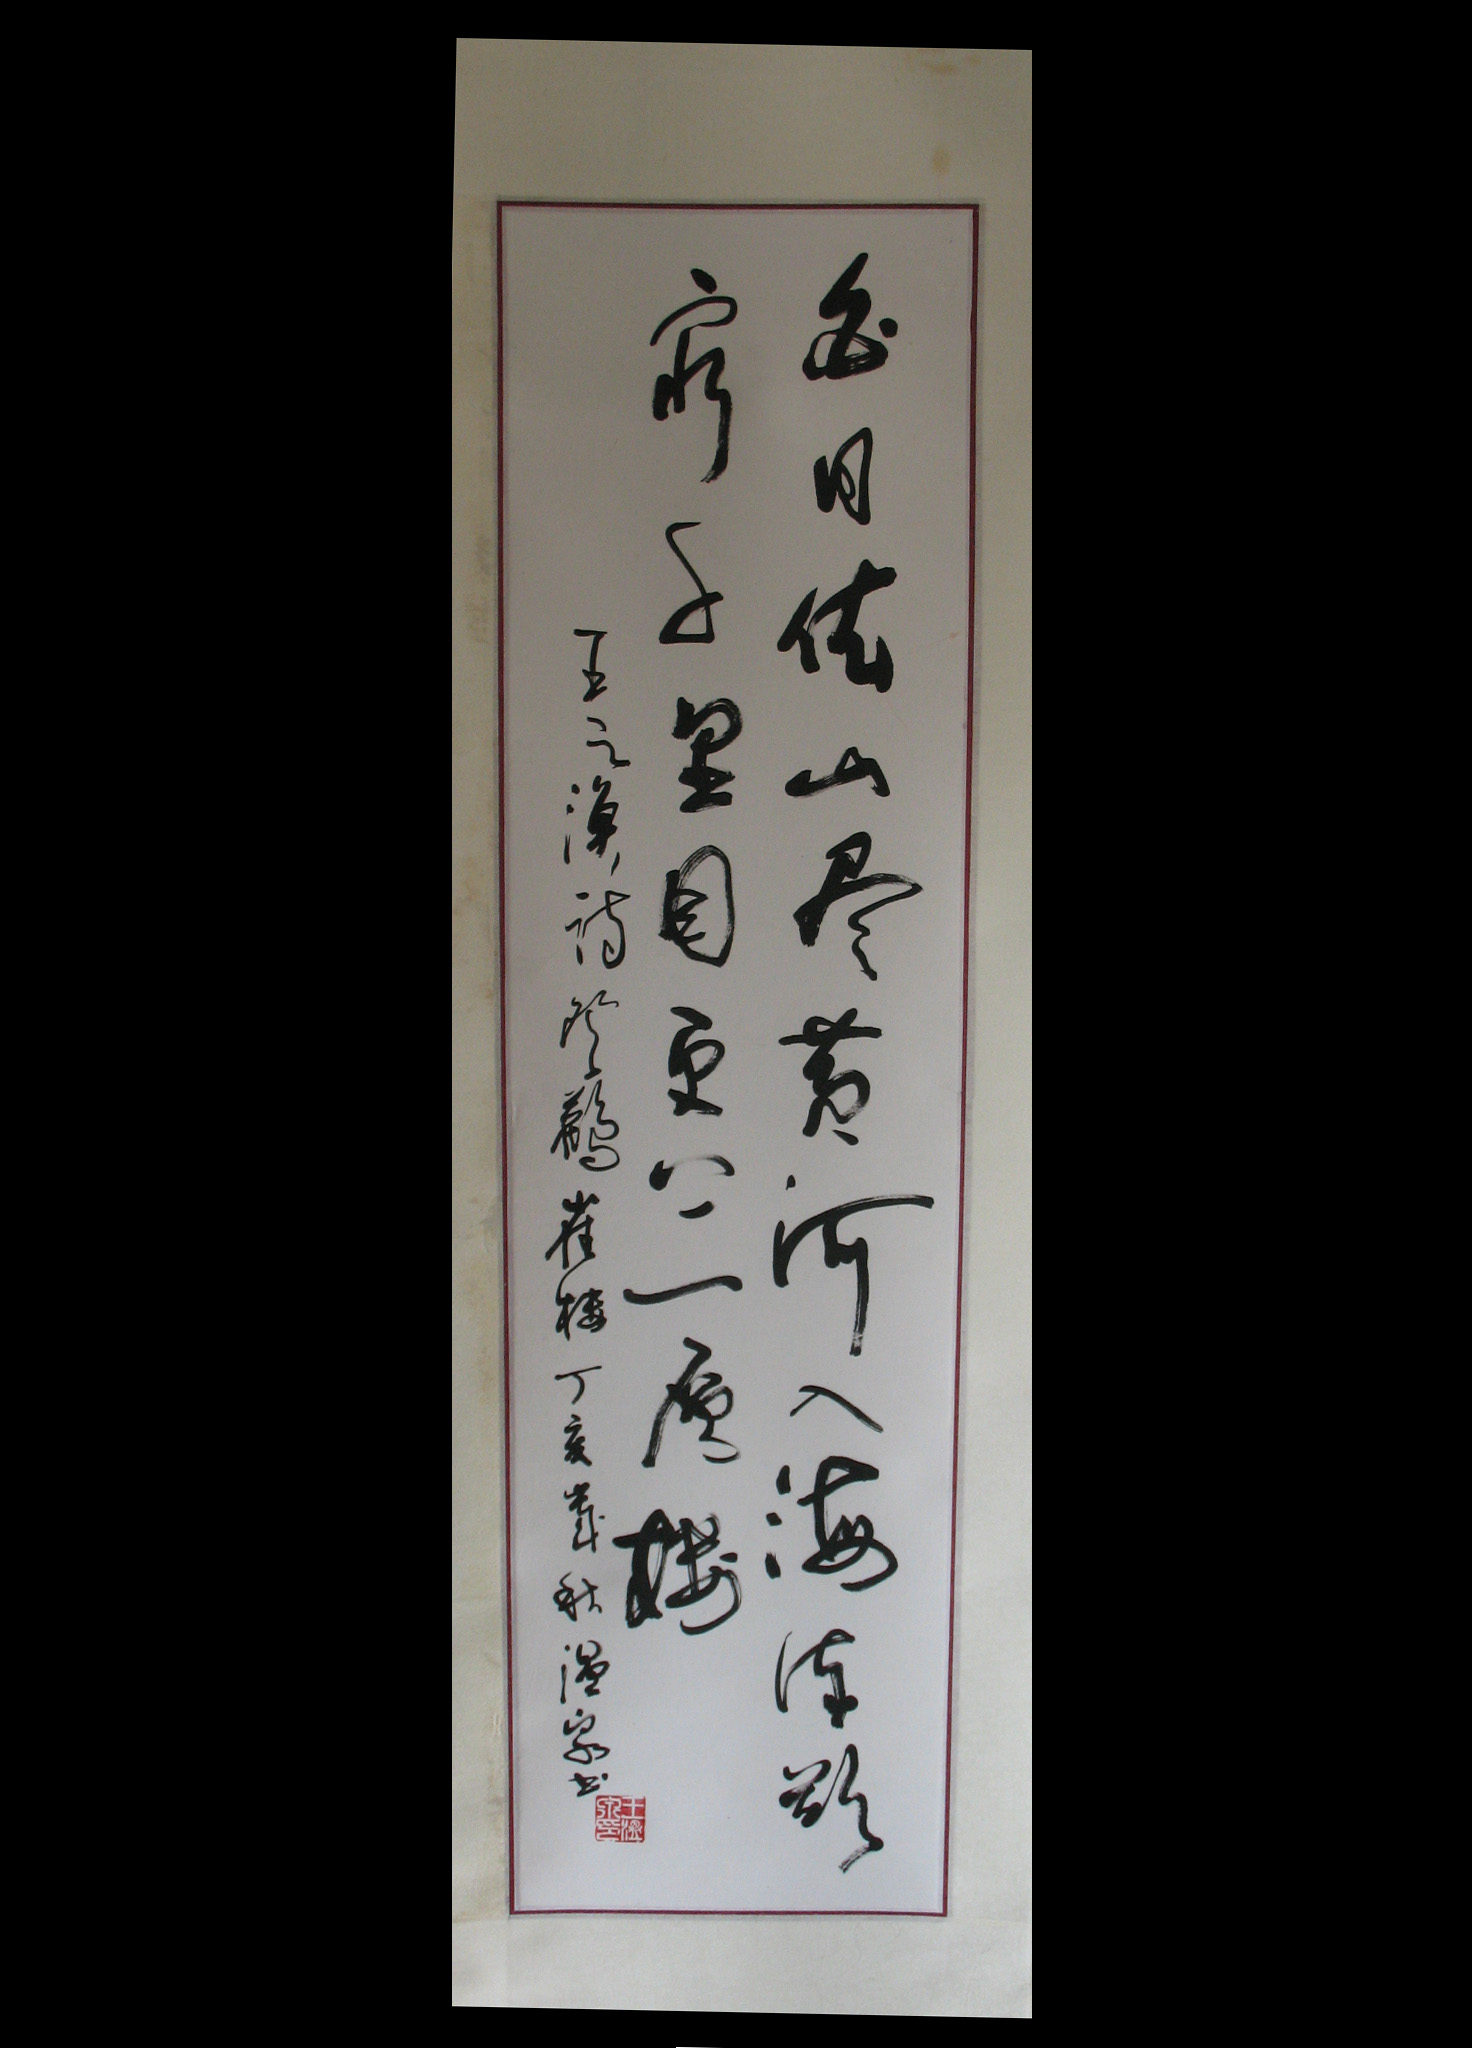 白日依山尽黄河入海流欲
穷千里目更上一层楼
王之涣诗登鹳雀楼丁亥岁秋温泉书
王温泉印